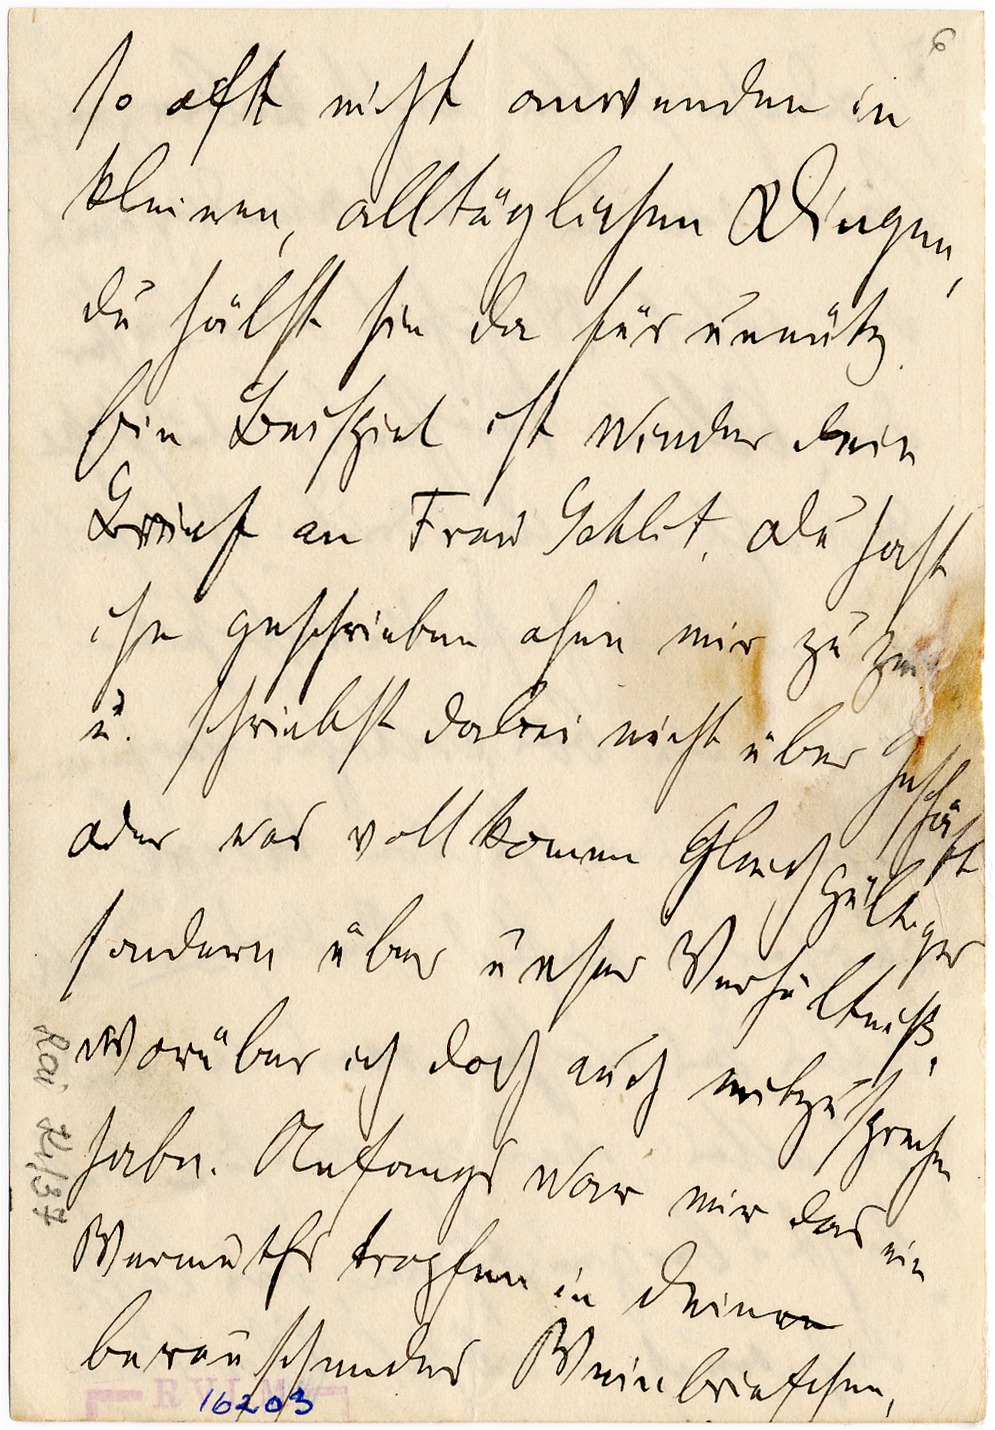 6
so oft nicht anwenden in
kleinen, alltäglichen Dingen,
du hälst sie da für unnütz.
Ein Beispiel ist wieder dein
Brief an Frau Schlit. Du hast
ihr geschrieben ohne mir zu
u. schriebst dabei nicht über Geschäft
oder was vollkomen Gleichgültiges
sondern über unser Verhältniß,
worüber ich doch auch mitzusprechen
habe. Anfangs war mir das ein
Wermuthstropfen in deinen
berauschenden Weinbriefchen,
16203